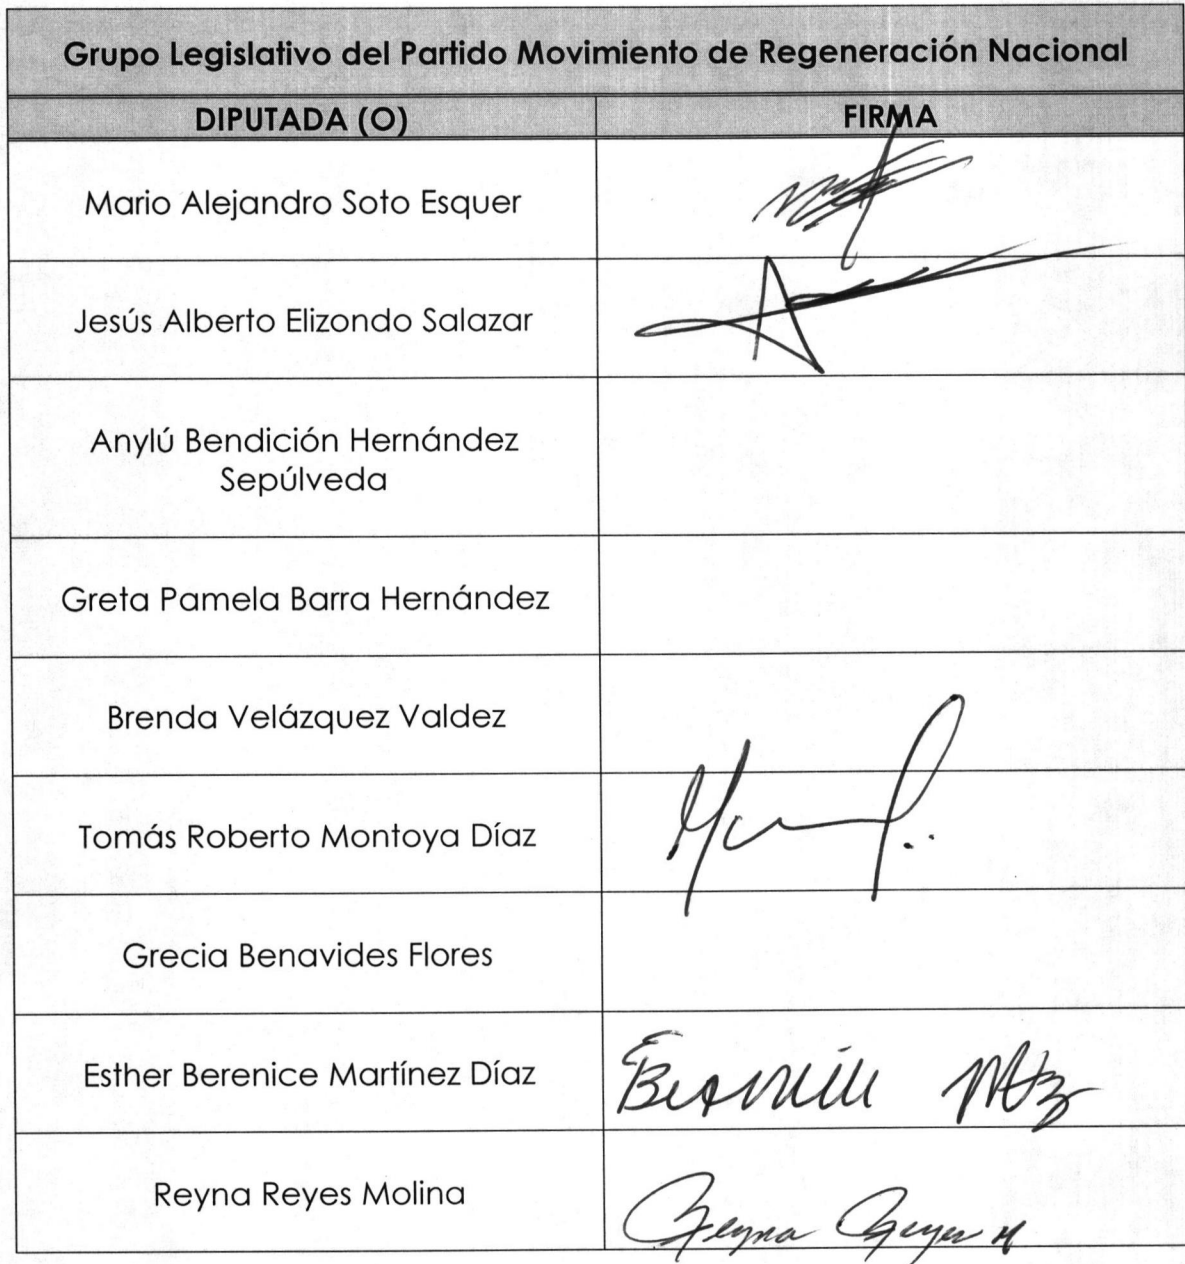 Grupo Legislativo del Partido Movimiento de Regeneración Nacional
DIPUTADA (O) FIRMA
Mario Alejandro Soto Esquer
Jesús Alberto Elizondo Salazar
Anylú Bendición Hernández
Sepúlveda
Greta Pamela Barra Hernández
Brenda Velázquez Valdez
Tomás Roberto Montoya Díaz
Grecia Benavides Flores
Esther Berenice Martínez Díaz Mtz
Reyna Reyes Molina Reyna Reyes M